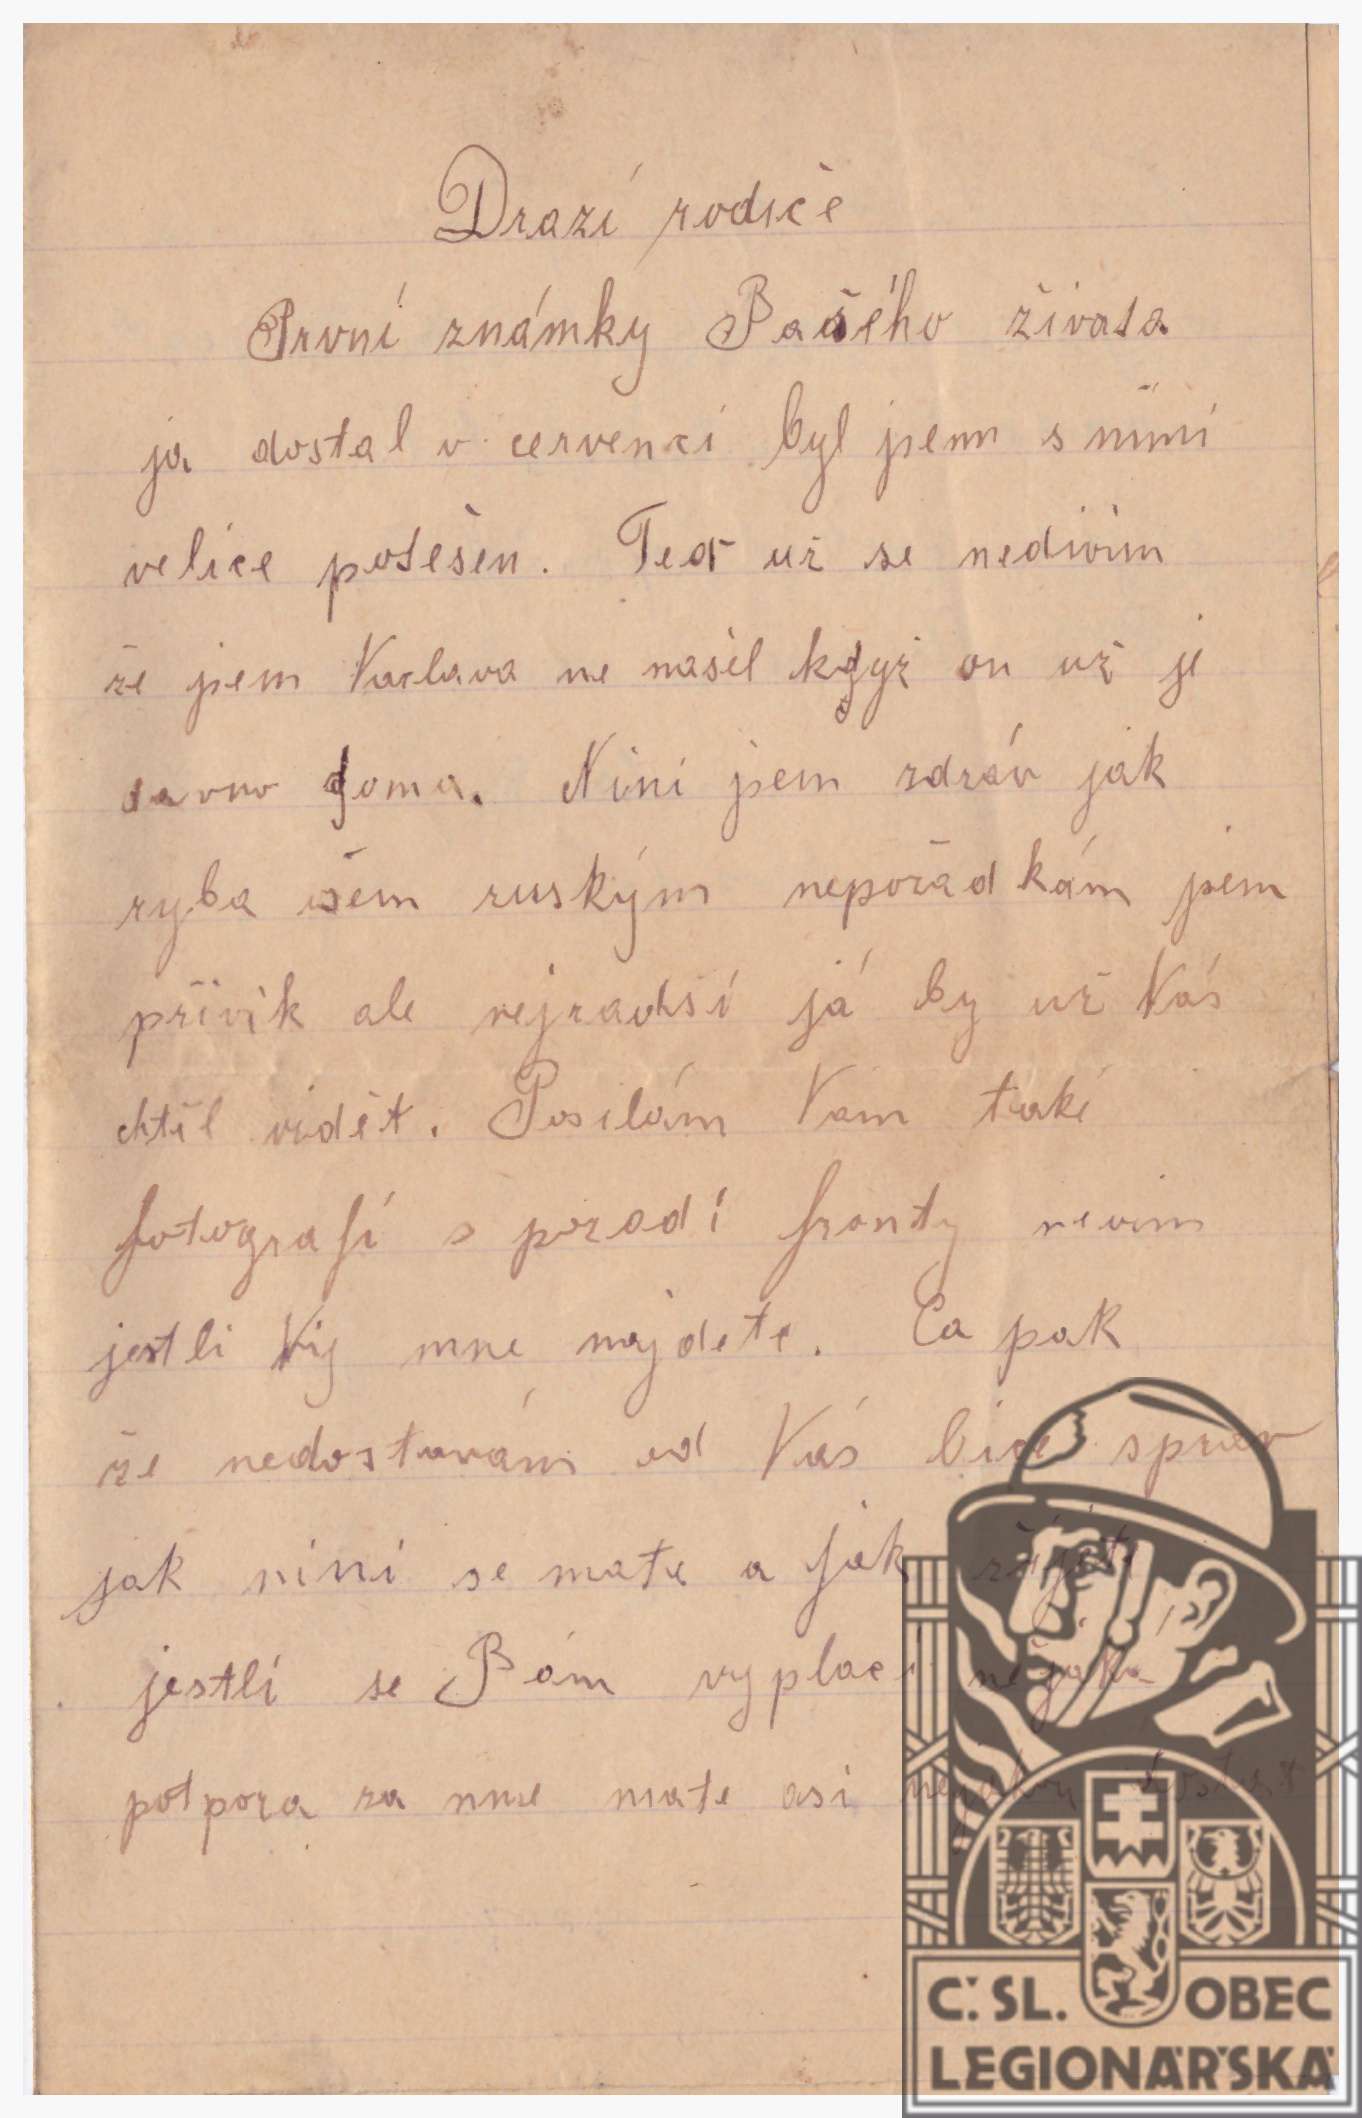 Drazí rodiče
První známky Vašého života
ja dostal v červenci byl jsem s nimi
velice potěšen. Teď už se nedivim
že jsem Vaclava ne našel když on už je
davno doma. Nini jsem zdráv jak
ryba všem ruským nepořádkám jsem
přivik ale nejradši já by už Vás
chtěl vidět. Posilám Vám také
fotografí s pozadí fronty nevim
jestli Vy mne najdete. Ca pak
že nedostavám od Vás bice zprav
jak nini se mate a jak žijete
jestli se Vám vyplaci nějaka
potpora za mne mate asi nejakou
Č. SL. OBEC
LEGIONÁŘSKÁ